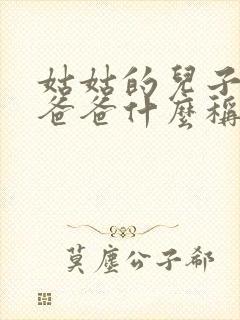 姑姑的兒子
爸爸什麼稱
莫塵公子郗